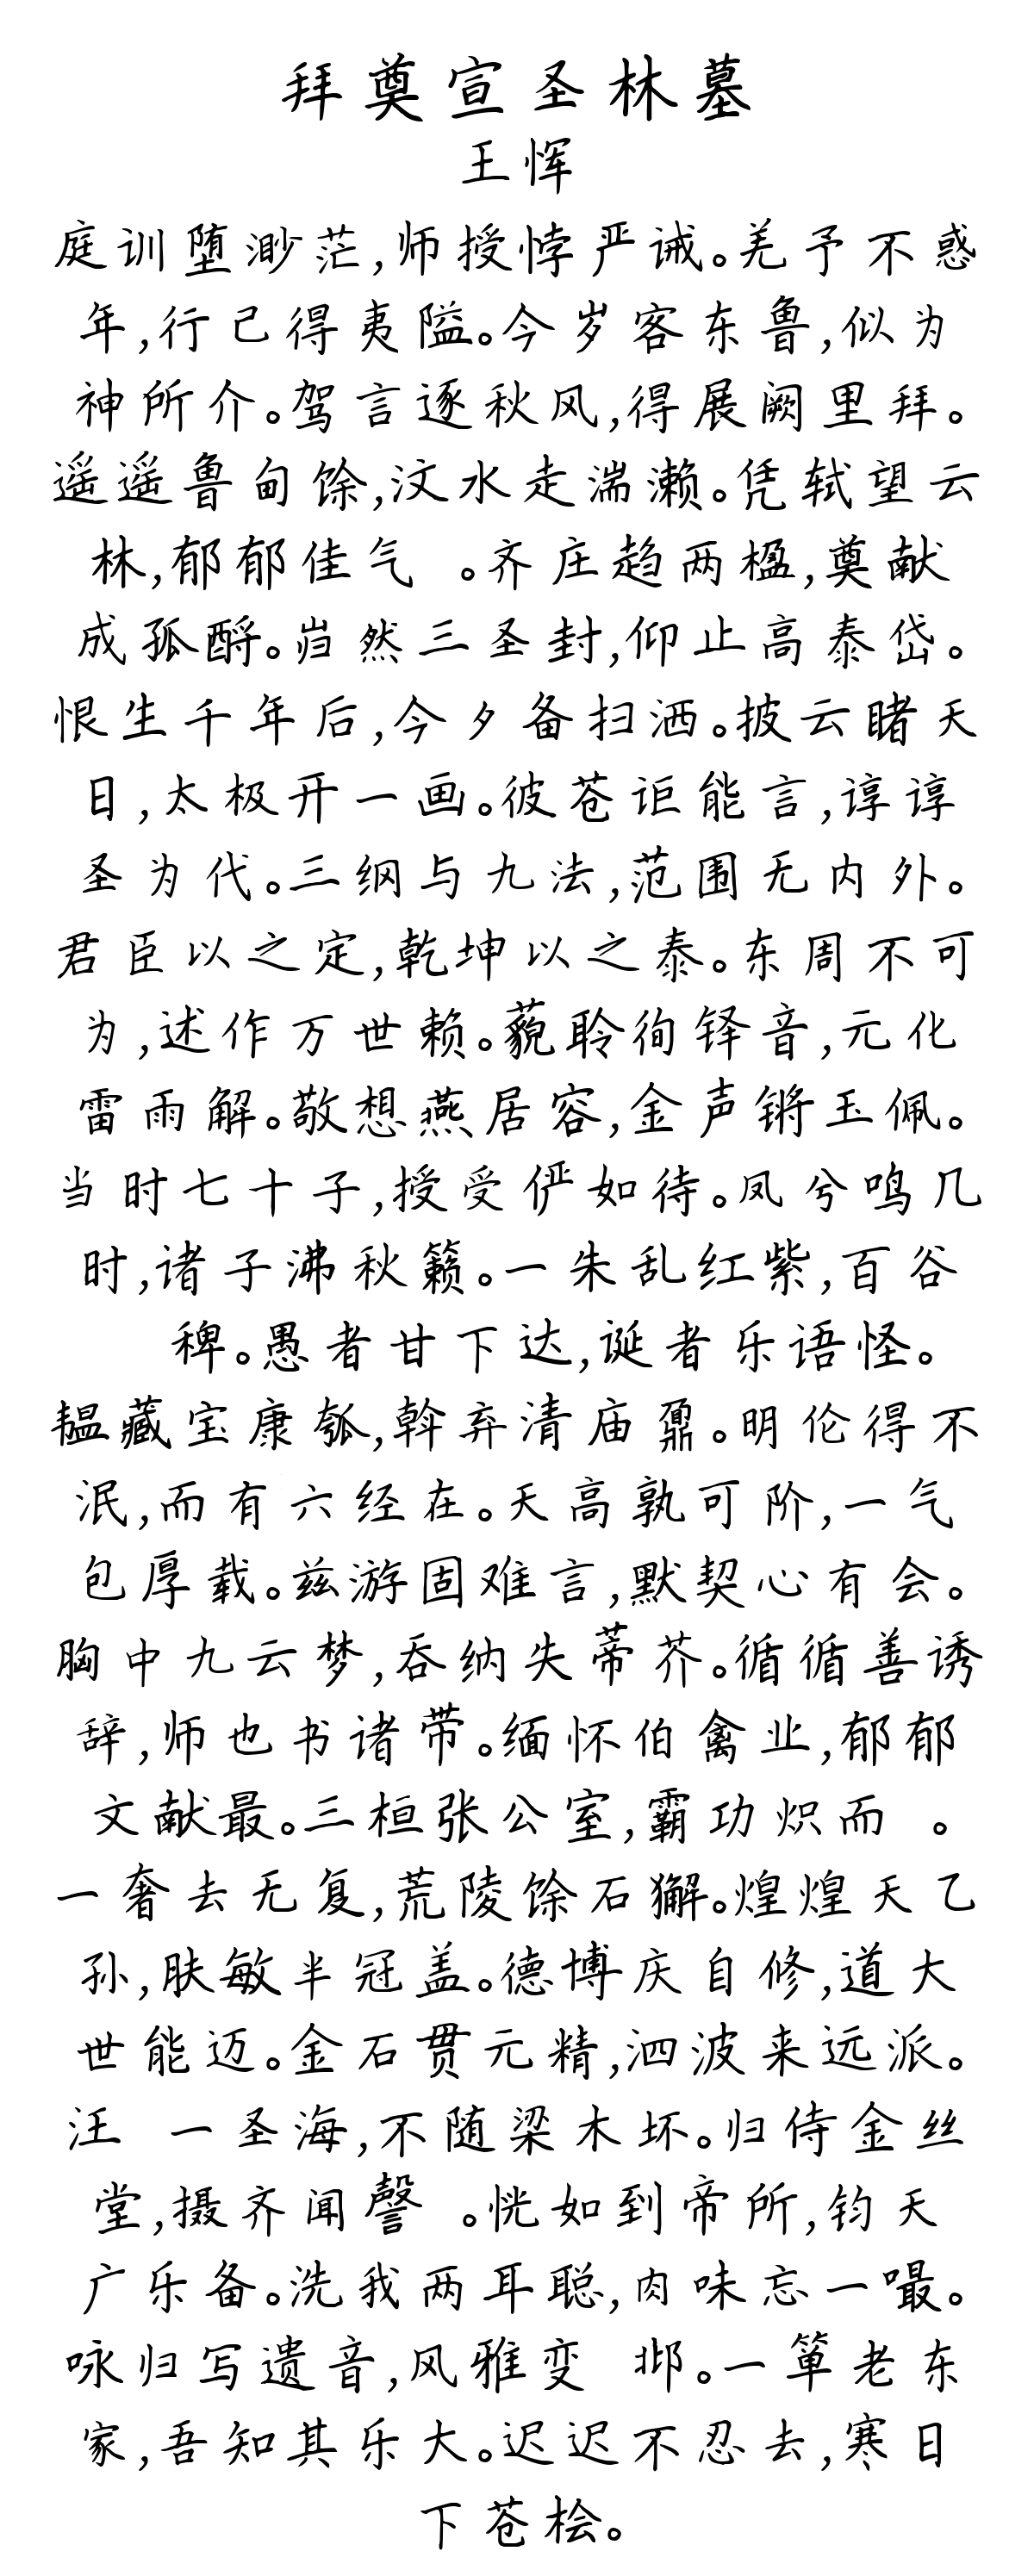 拜奠宣圣林墓
王恽
庭训堕渺茫,师授悖严诫。羌予不惑
年,行己得夷隘。今岁客东鲁,似为
神所介。驾言逐秋风,得展阙里拜。
遥遥鲁甸馀,汶水走湍濑。凭轼望云
林,郁郁佳气 。齐庄趋两楹,奠献
成孤酹。岿然三圣封,仰止高泰岱。
恨生千年后,今夕备扫洒。披云睹天
日,太极开一画。彼苍讵能言,谆谆
圣为代。三纲与九法,范围无内外。
君臣以之定,乾坤以之泰。东周不可
为,述作万世赖。藐聆徇铎音,元化
雷雨解。敬想燕居容,金声锵玉佩。
当时七十子,授受俨如待。凤兮鸣几
时,诸子沸秋籁。一朱乱红紫,百谷
稗。愚者甘下达,诞者乐语怪。
韫藏宝康瓠,斡弃清庙鼐。明伦得不
泯,而有六经在。天高孰可阶,一气
包厚载。兹游固难言,默契心有会。
胸中九云梦,吞纳失蒂芥。循循善诱
辞,师也书诸带。缅怀伯禽业,郁郁
文献最。三桓张公室,霸功炽而 。
一奢去无复,荒陵馀石獬。煌煌天乙
孙,肤敏半冠盖。德博庆自修,道大
世能迈。金石贯元精,泗波来远派。
汪 一圣海,不随梁木坏。归侍金丝
堂,摄齐闻謦 。恍如到帝所,钧天
广乐备。洗我两耳聪,肉味忘一嘬。
咏归写遗音,风雅变 邶。一箪老东
家,吾知其乐大。迟迟不忍去,寒日
下苍桧。